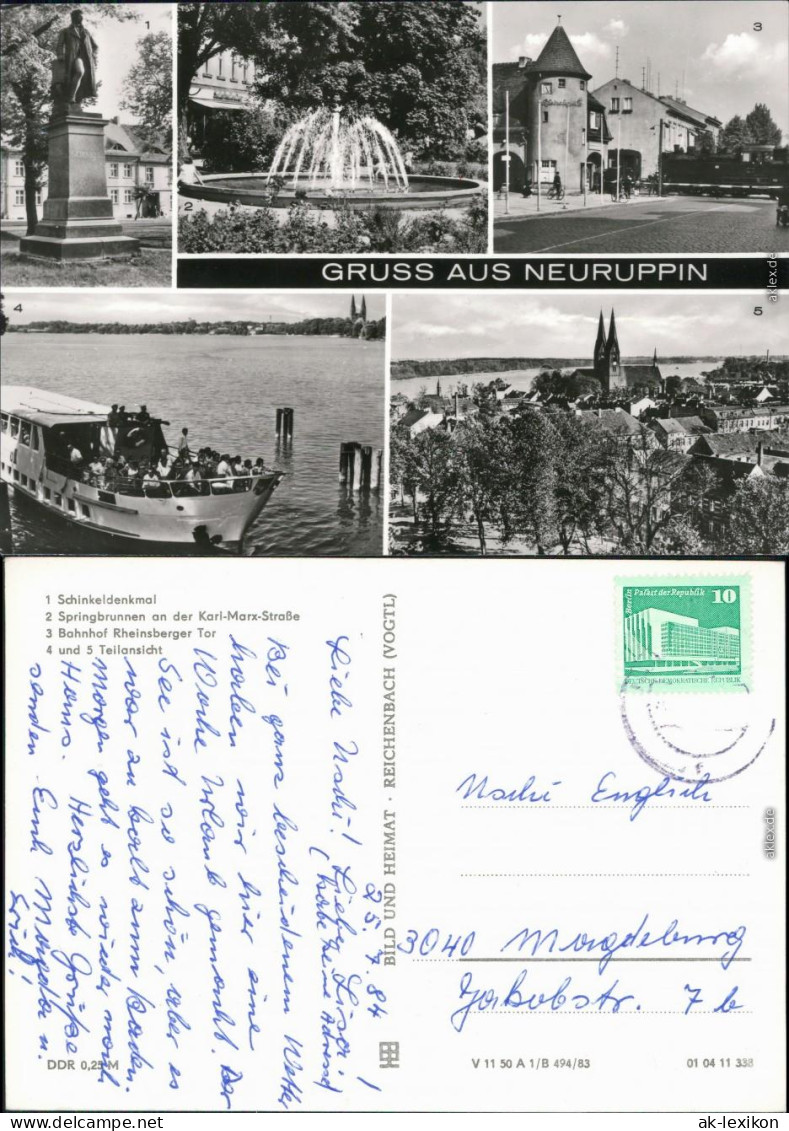 1
2
3
4
5
GRUSS AUS NEURUPPIN
aklex.de
1 Schinkeldenkmal
2 Springbrunnen an der Karl-Marx-Straße
3 Bahnhof Rheinsberger Tor
4 und 5 Teilansicht
25.7.84
Liebe Uschi! Lieber Lisa!
(habe keine Adresse)
Bei ganz bescheidenem Wetter
haben wir hier eine
Woche Urlaub gemacht. Der
See ist so schön, aber es
war zu kalt zum Baden.
Morgen geht es wieder nach
Haus. Herzlichste Grüße
senden Euch Magda u.
Erich!
BILD UND HEIMAT · REICHENBACH (VOGTL)
Berlin Palast der Republik
10
DEUTSCHE DEMOKRATISCHE REPUBLIK
Uschi Englich
3040 Magdeburg
Jakobstr. 7b
aklex.de
DDR 0,25 M
V 11 50 A 1/B 494/83
01 04 11 338
ak-lexikon